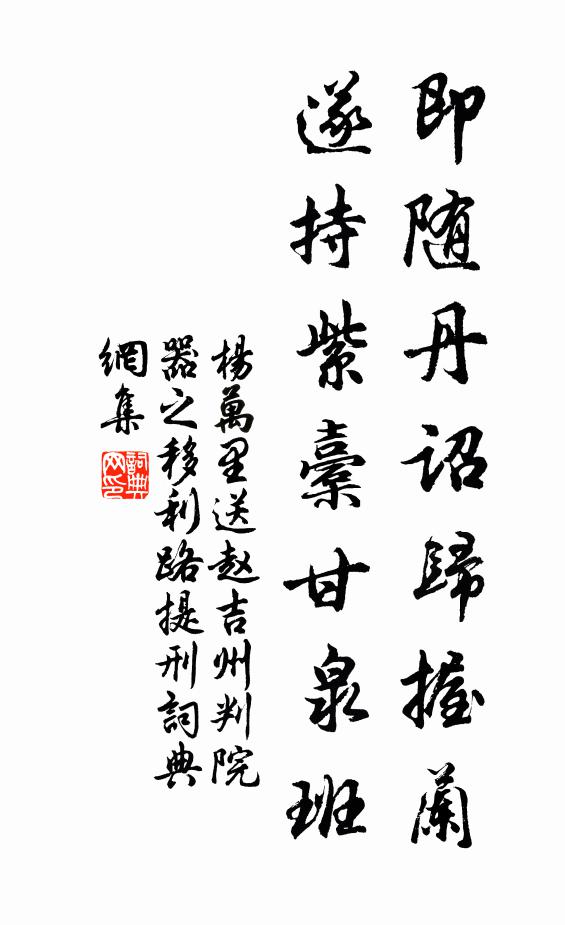 即随丹詔歸握蘭
遂持紫橐甘泉班
楊萬里送赵吉州判院
器之移利路提刑詞典
網集
詞典網印